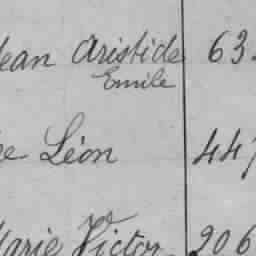 Jean Aristide 63
Emile
Léon 447
Marie Victor 206